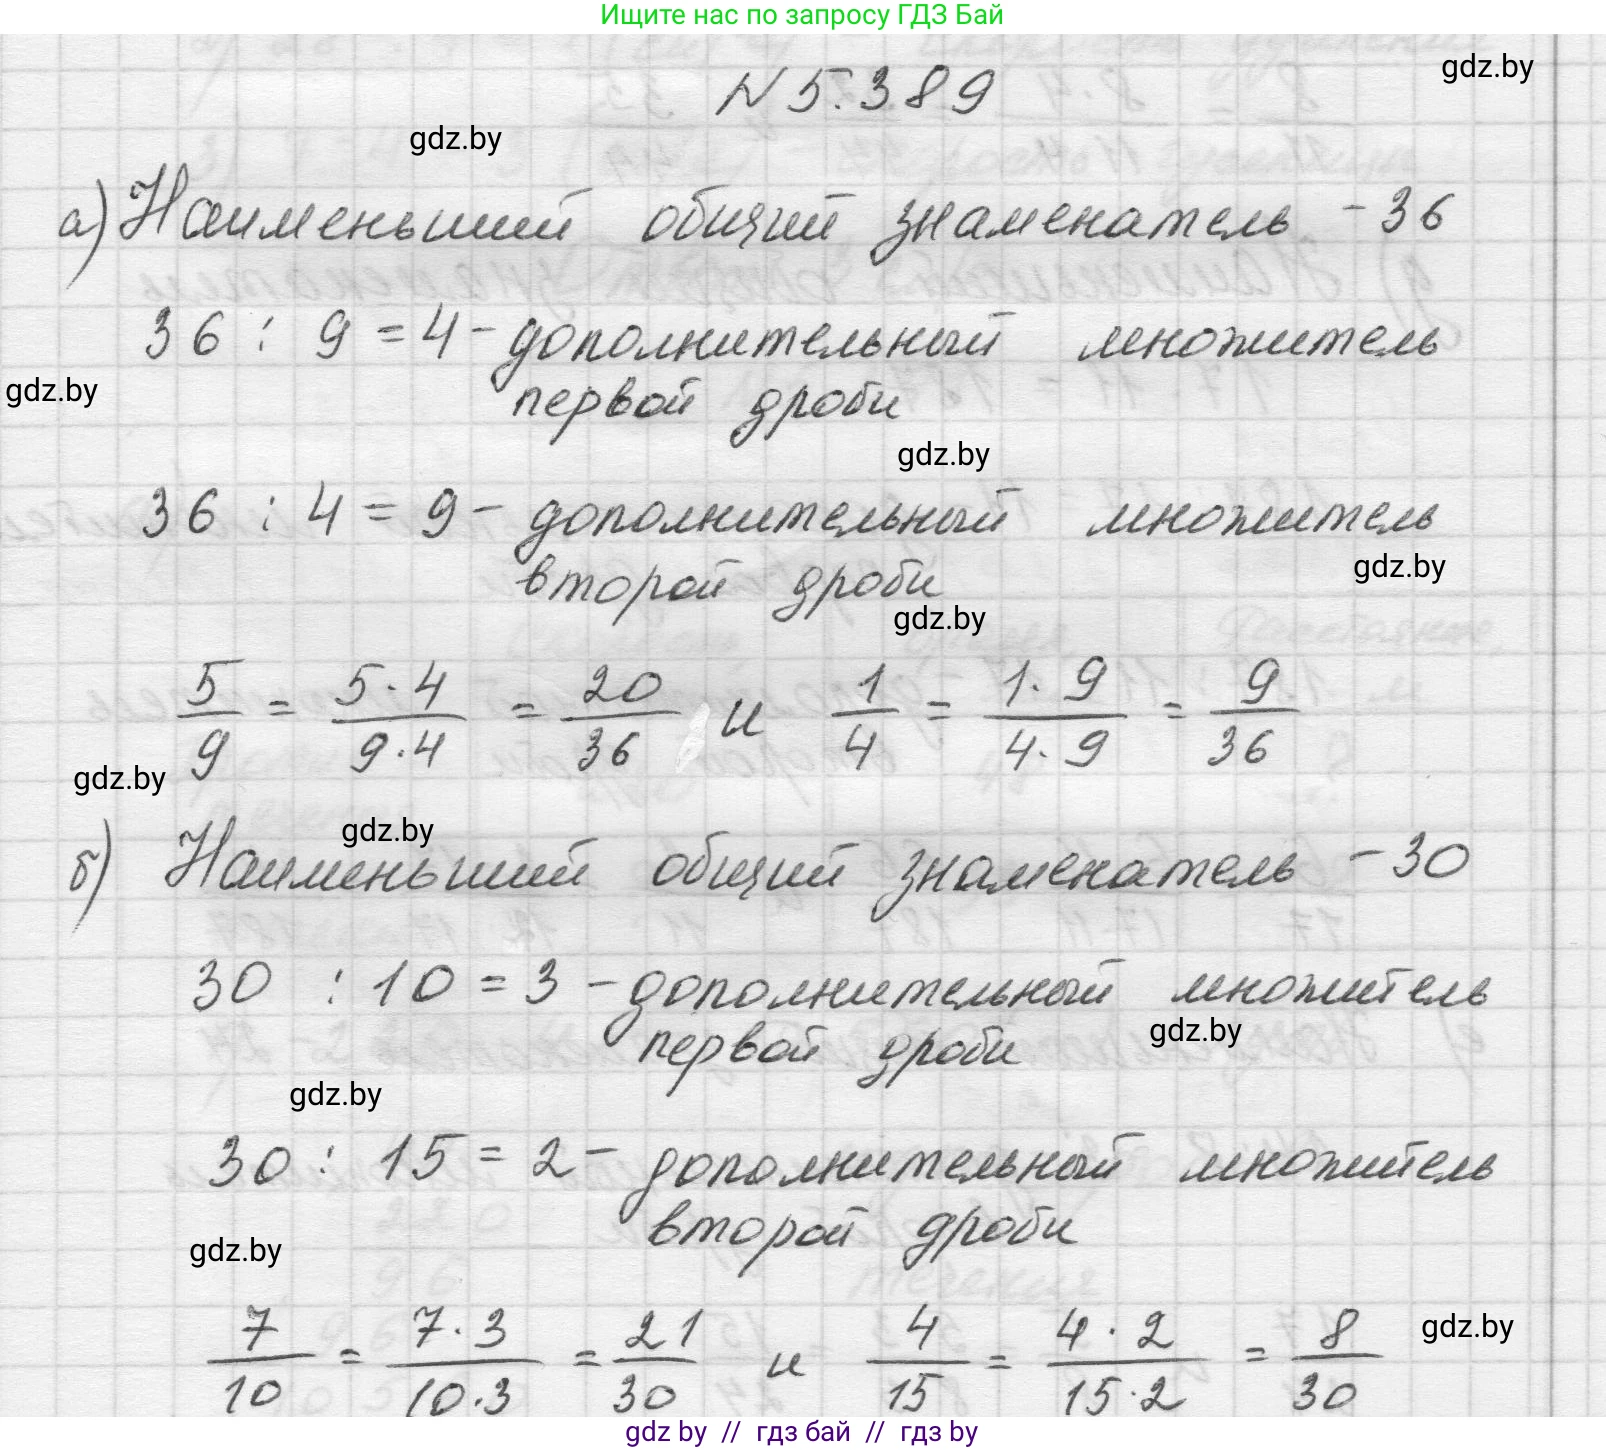 Ищите нас по запросу ГДЗ Бай
gdz.by
N 5.389
gdz.by
а) Наименьший общий знаменатель - 36
36 : 9 = 4 - дополнительный множитель
gdz.by
первой дроби
gdz.by
36 : 4 = 9 - дополнительный множитель
gdz.by
второй дроби
gdz.by
5/9 = 5·4/9·4 = 20/36 и 1/4 = 1·9/4·9 = 9/36
gdz.by
gdz.by
б) Наименьший общий знаменатель - 30
30 : 10 = 3 - дополнительный множитель
gdz.by
первой дроби
gdz.by
30 : 15 = 2 - дополнительный множитель
второй дроби
gdz.by
7/10 = 7·3/10·3 = 21/30 и 4/15 = 4·2/15·2 = 8/30
gdz.by
gdz by // гдз бай // gdz by